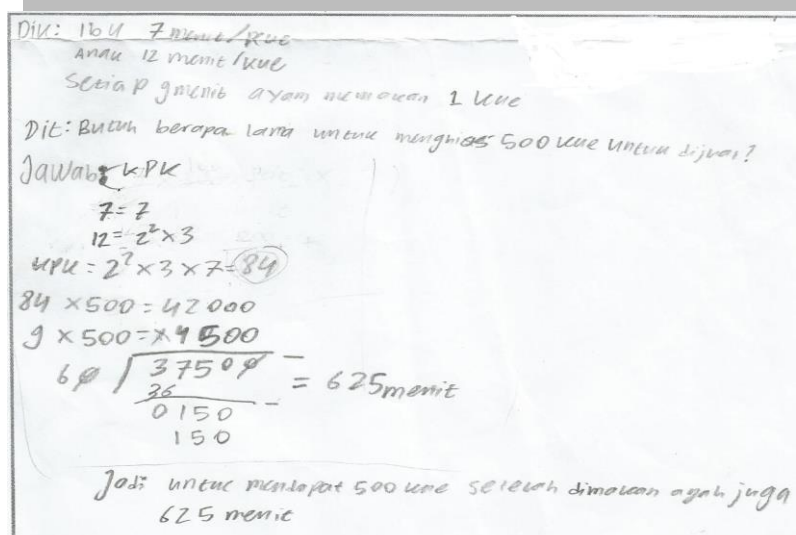 Dik: Ibu 7 menit/kue
Anak 12 menit/kue
Setiap 9 menit ayam memakan 1 kue
Dit: Butuh berapa lama untuk menghias 500 kue untuk dijual?
Jawab: KPK
7 = 7
12 = 2² × 3
KPK = 2² × 3 × 7 = 84
84 × 500 = 42000
9 × 500 = 4500
60 / 37500 = 625 menit
36
0150
150
Jadi untuk mendapat 500 kue setelah dimakan ayah juga
625 menit